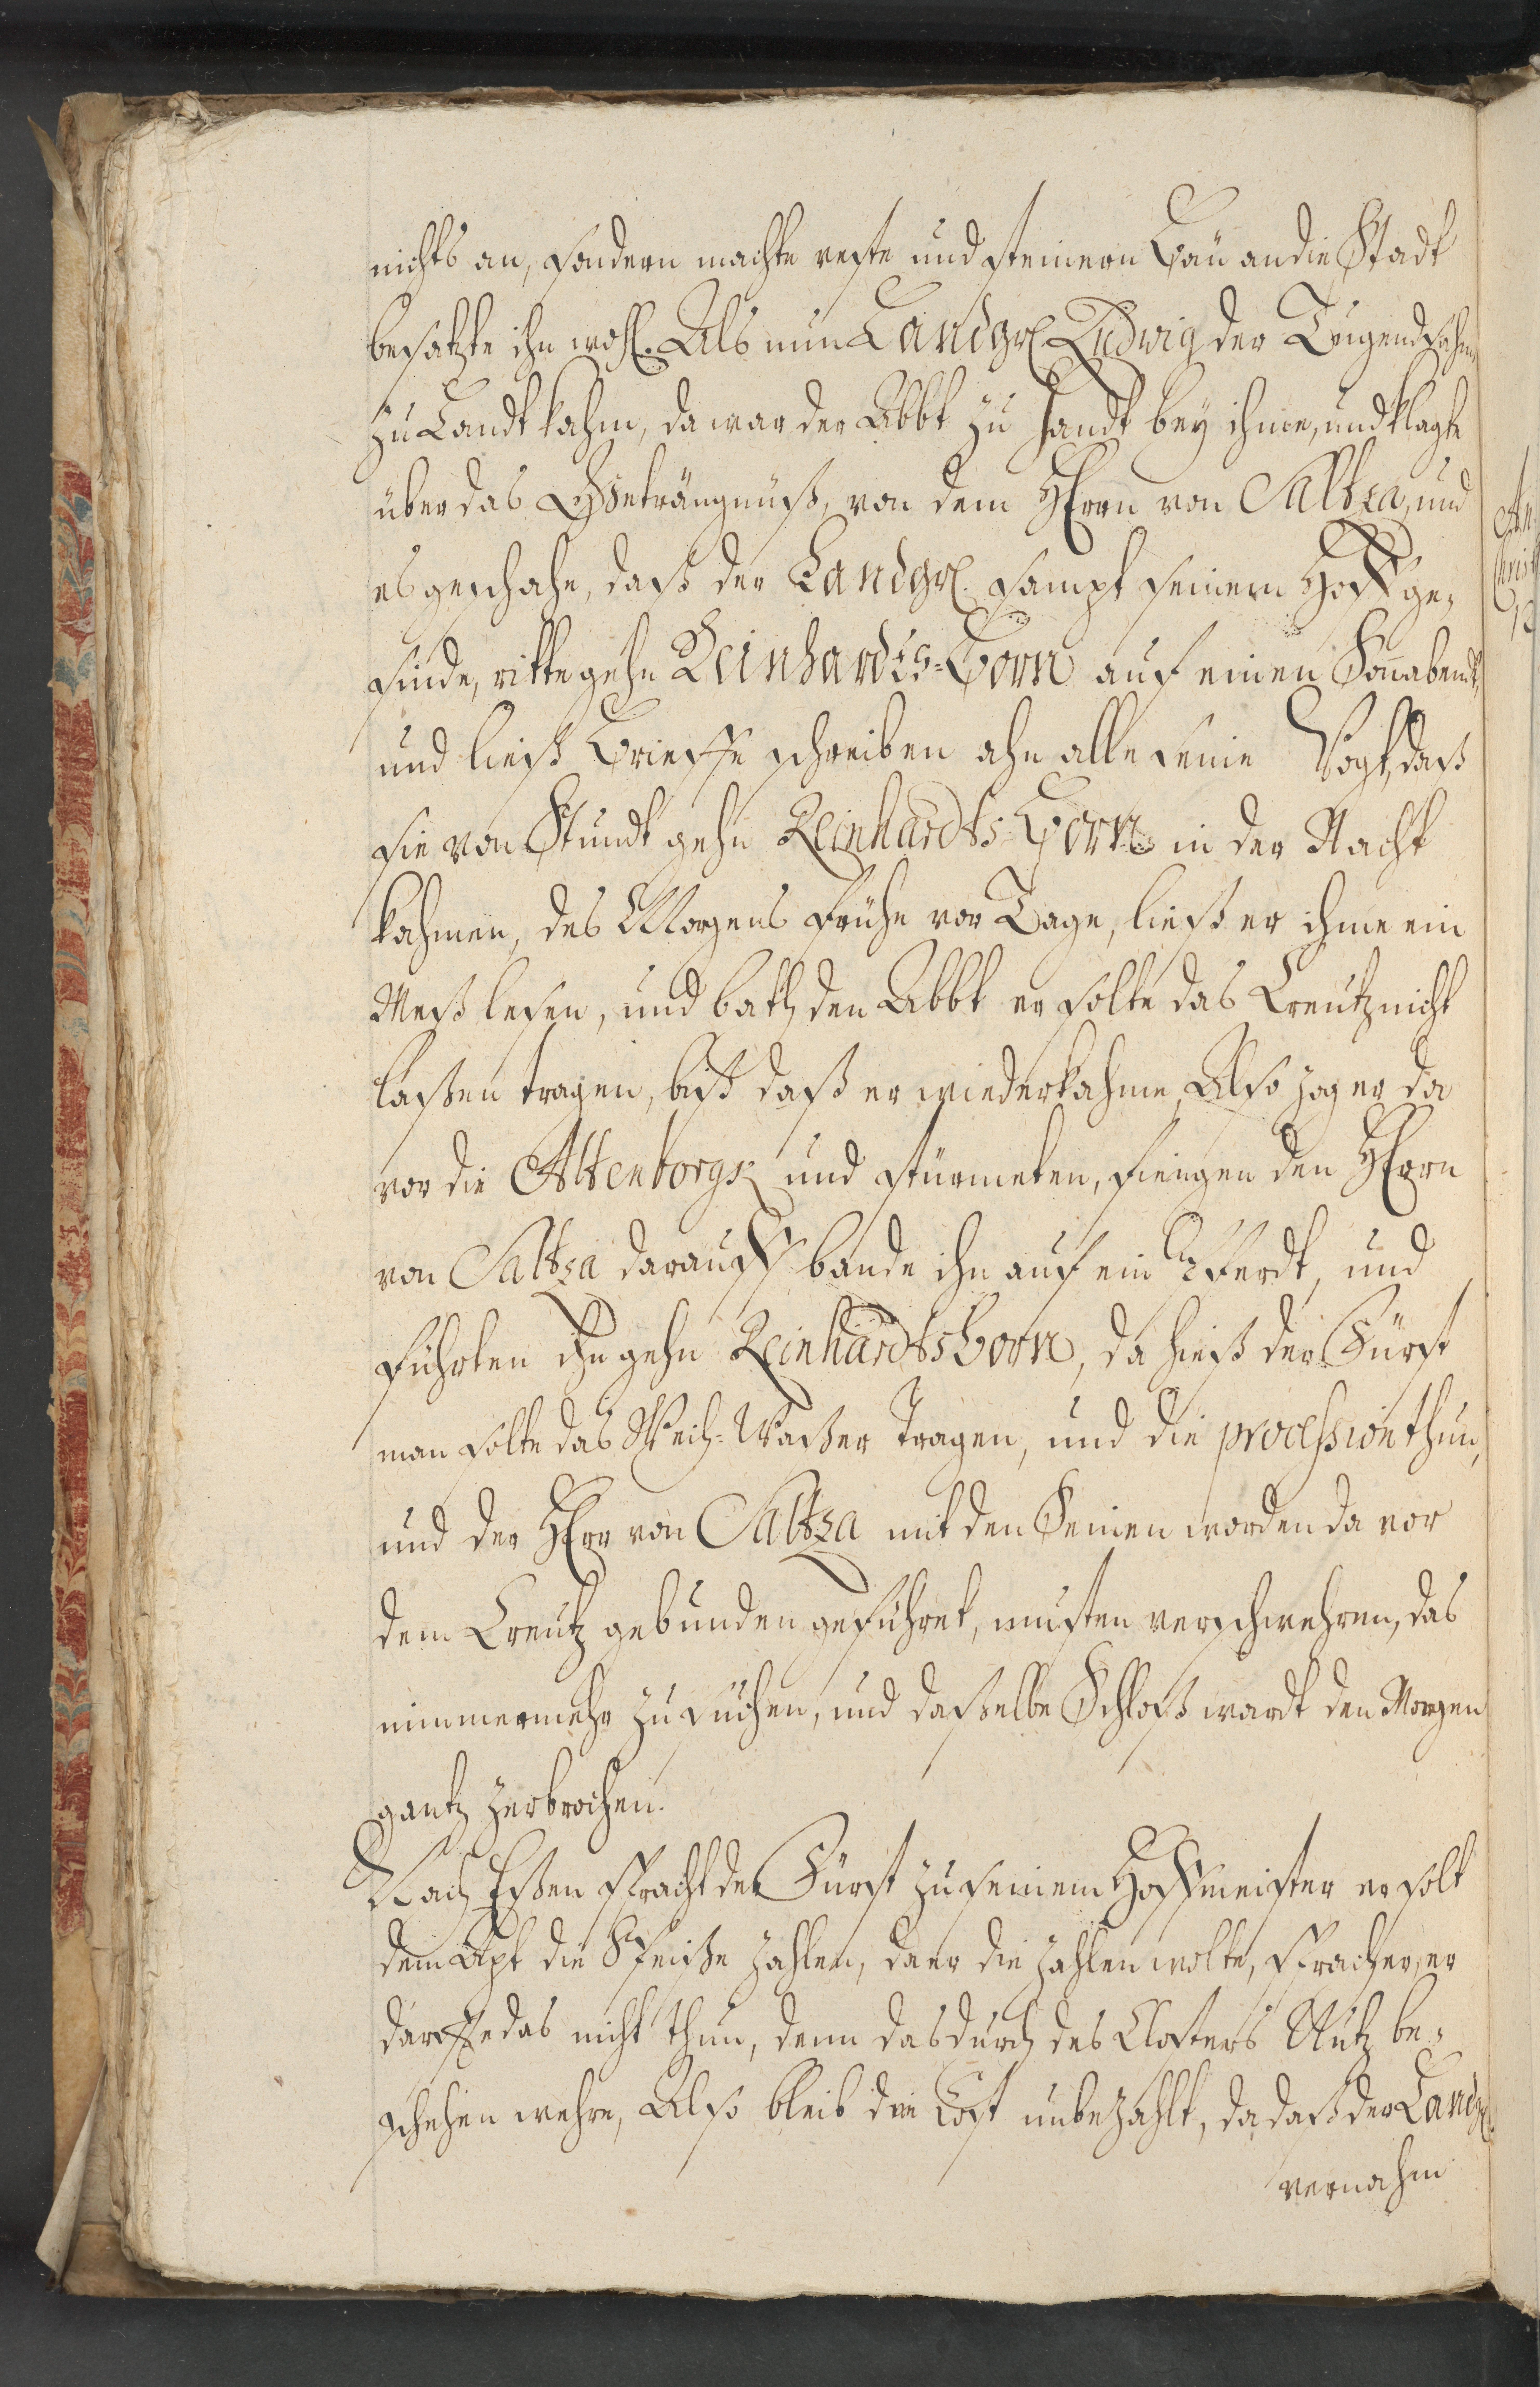 nichts an, sondern machte veste und steinern Bau an die Stadt
besatzte ihn wohl. Als nun Landgr. Ludwig der Tugendsahme
zu Landt kahm, da war der Abbt zu Handt bey ihme, und klagte
über das Geträngnüß, von dem HErrn von Saltza, und
es geschahe, daß der Landgr. sampt seinem Hoffge-
sinde, ritte gehn Reinhardts-Born auf einen Sonabendt,
und ließ Brieffe schreiben ahn alle seine Vögt, daß
sie von Stundt gehn Reinhardts-Born in der Nacht
kahmen, des Morgens frühe vor Tage, ließ er ihme ein
Meß lesen, und bath den Abbt er solte das Creutz nicht
laßen tragen, biß daß er wiederkahme, Also zog er da
vor die Altenborgk und stürmeten, fiengen den HErrn
von Saltza darauff bande ihn auf ein Pferdt, und
führten ihn gehn Reinhardtsborn, da hieß der Fürst
man solte das Weih-Waßer tragen, und die procession thun,
und der HErr von Saltza mit den Seinen worden da vor
dem Creutz gebunden geführet, musten verschwehren, das
nimmermehr zu suchen, und daßelbe Schloß wardt den Morgen
gantz zerbrochen.
Nach Eßen spracht der Fürst zu seinem Hoffmeister er solt
dem Apt die Speiße zahlen, da er die zahlen wolte, sprach er, er
dörffe das nicht thun, denn das durch des Closters Nutz be-
schehen wehre, Also bleib die Kost unbezahlt, da daß der Landgr.
vernahm